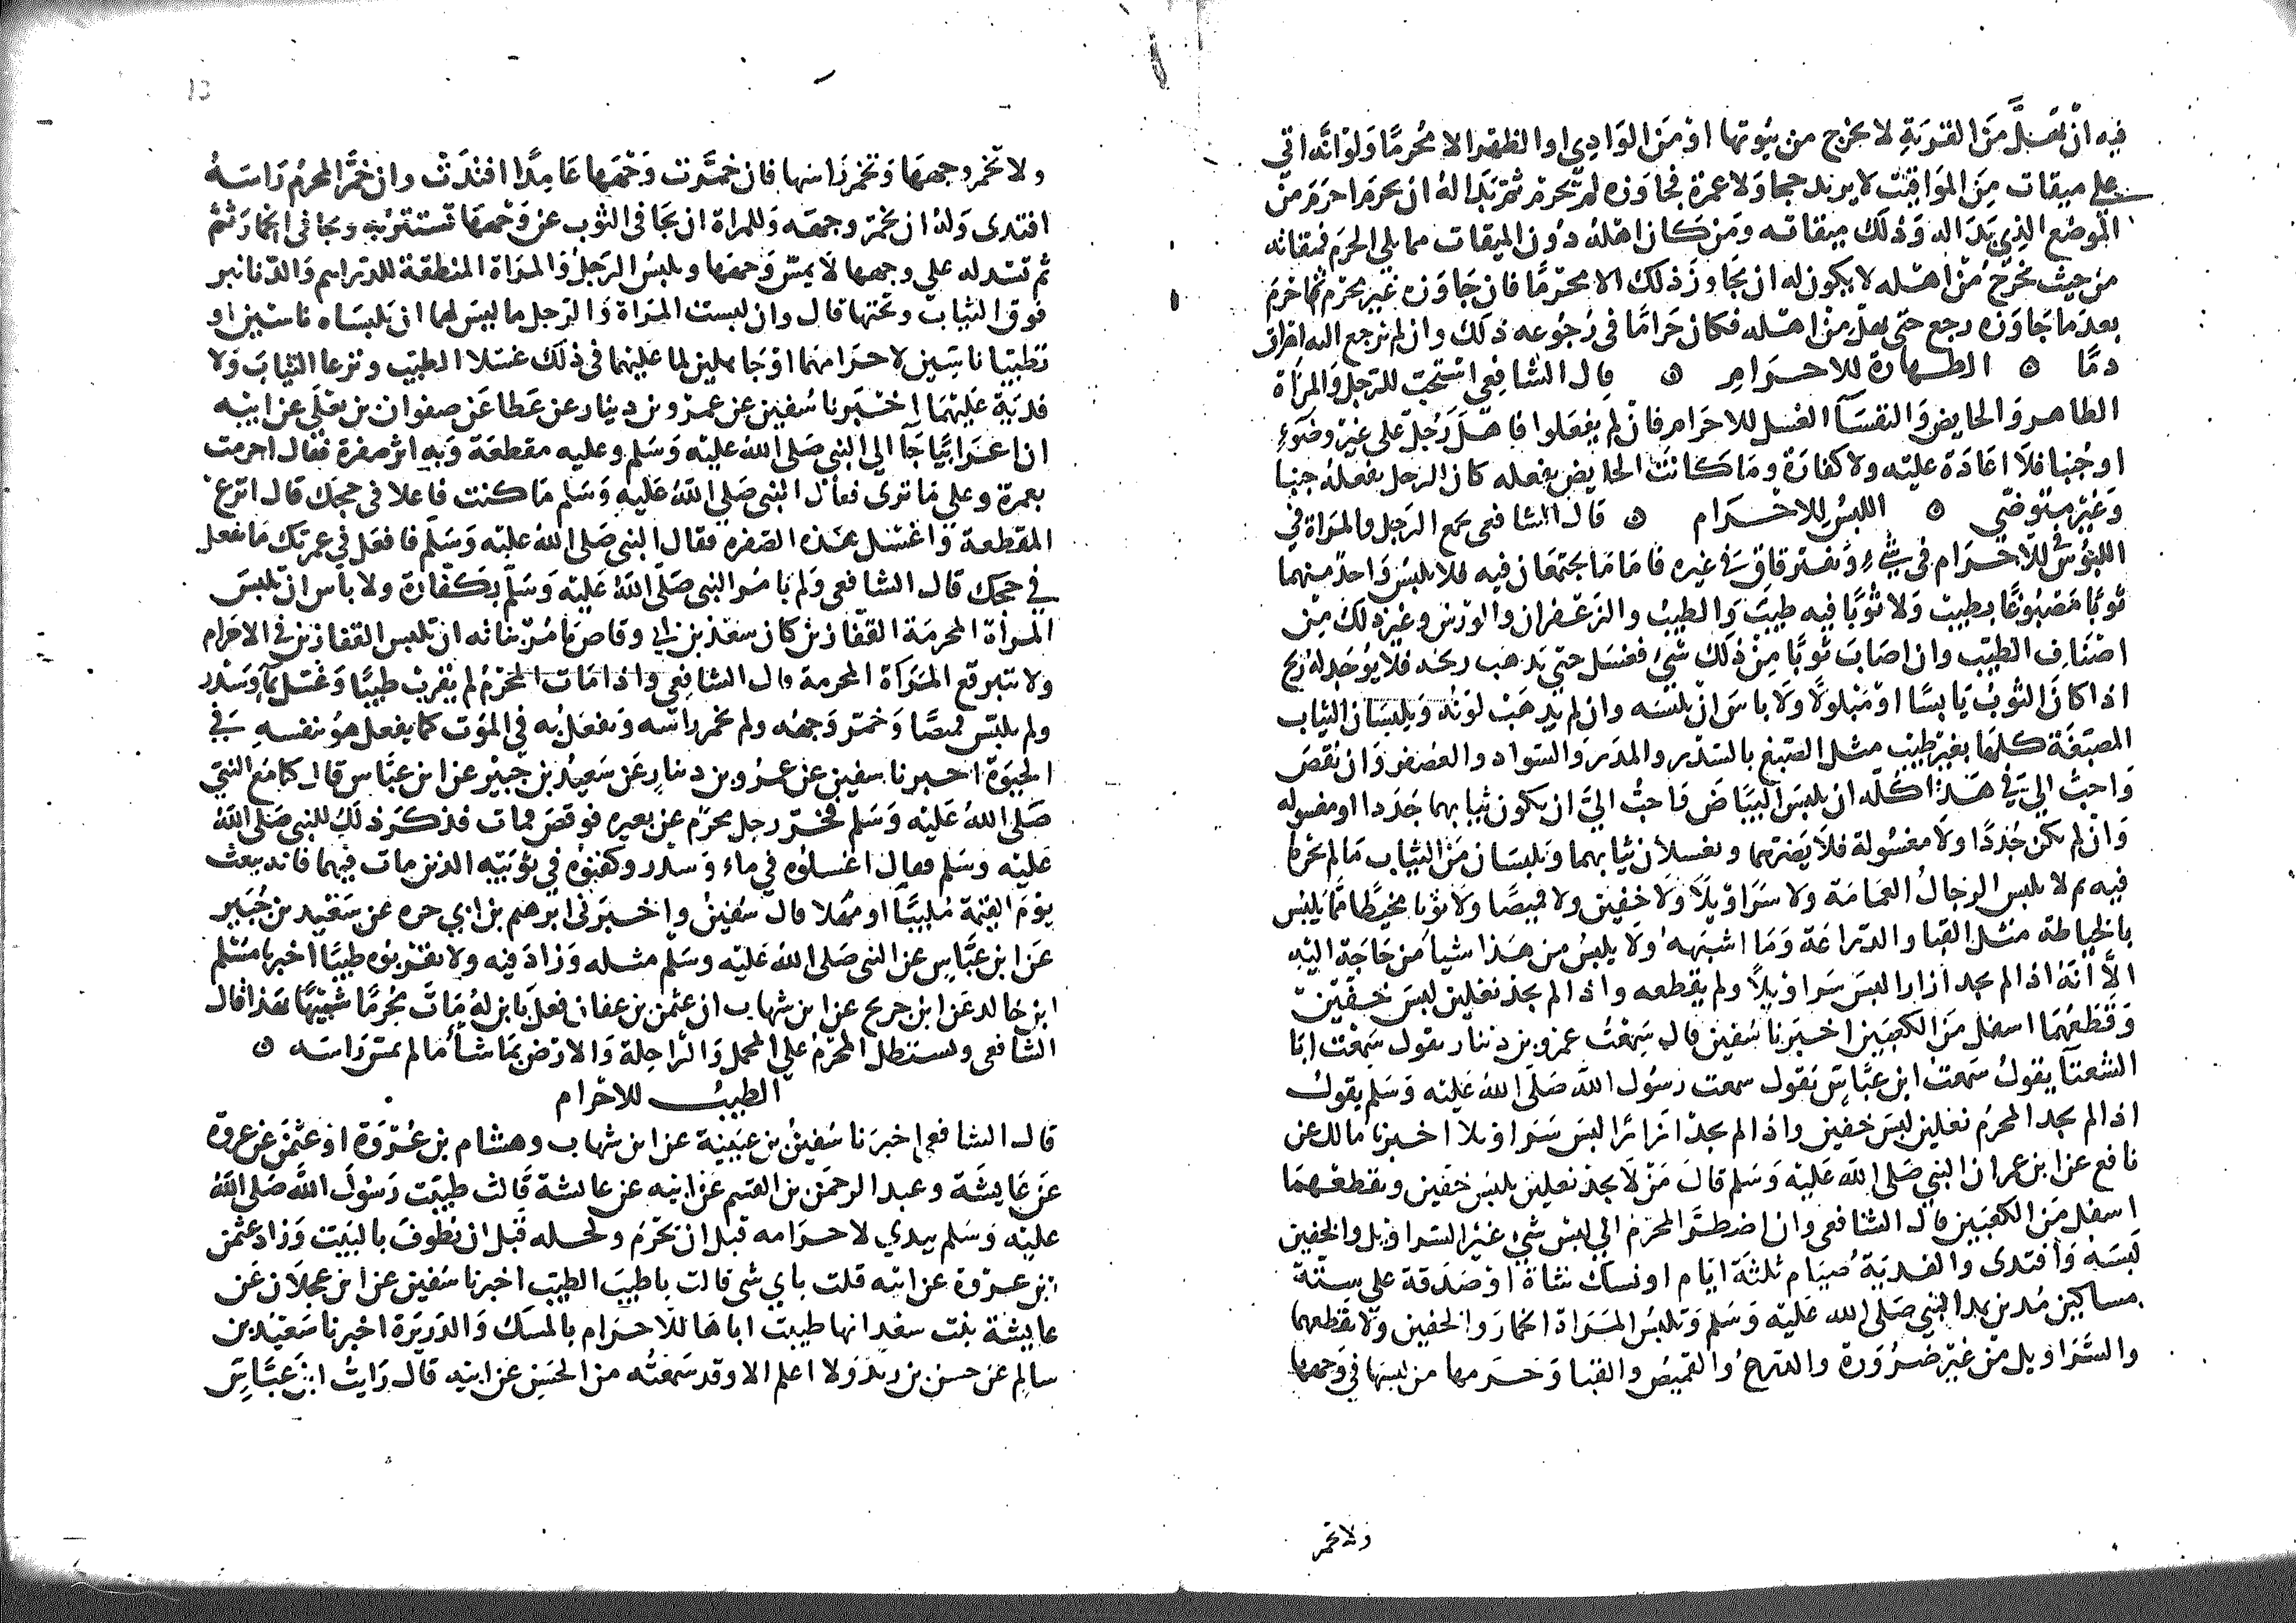 فيه ان يهل من القرية لا يخرج من بيوتها او من الوادي او الظهر الا محرما ولو انه اتى
على ميقات من المواقيت لا يريد حجا ولا عمرة فجاوزه لم يحرم ثم بدا له ان يحرم احرم من
الموضع الذي بدا له وذلك ميقاته ومن كان اهله دون الميقات مما يلي الحرم فميقاته
من حيث يخرج من اهله لا يكون له ان يجاوز ذلك الا محرما فان جاوزه غير محرم ثم احرم
بعد ما جاوزه رجع حتى يهل من اهله فكان حراما في رجوعه ذلك وان لم يرجع اليه اهراق
دما ۞ الطهارة للاحرام ۞ قال الشافعي استحب للرجل والمراة
الطاهر والحايض والنفسآ الغسل للاحرام فان لم يفعلوا فاهل رجل على غير وضوء
او جنبا فلا اعادة عليه ولا كفارة وما كانت الحايض يفعله كان الرجل يفعله جنبا
وغير متوضي ۞ اللبس للاحرام ۞ قال الشافعي يجمع الرجل والمراة في
اللبوس للاحرام في شيء ويفترقان في غيره فاما ما يجتمعان فيه فلا يلبس واحد منهما
ثوبا مصبوغا بطيب ولا ثوبا فيه طيب والطيب والزعفران والورس وغير ذلك من
اصناف الطيب وان اصاب ثوبا من ذلك شيء فغسل حتى يذهب ريحه فلا يوجد له ريح
اذا كان الثوب يابسا او مبلولا ولا باس ان يلبسه وان لم يذهب لونه ويلبسان الثياب
المصبغة كلها بغير طيب مثل الصبغ بالسدر والمدر والسواد والعصفر وان نفض
واحب الي في هذا كله ان يلبس البياض واحب الي ان يكون ثيابهما جددا او مغسوله
وان لم يكن جددا ولا مغسولة فلا يضرهما ويغسلان ثيابهما ويلبسان من الثياب ما لم يحرما
فيه ثم لا يلبس الرجال العمامة ولا سراويلا ولا خفين ولا قميصا ولا ثوبا مخيطا مما يلبس
بالخياطة مثل القبا والدراعة وما اشبهه ولا يلبس من هذا شيا من حاجة اليه
الا انه اذا لم يجد ازارا لبس سراويلا ولم يقطعه واذا لم يجد نعلين لبس خفين
وقطعهما اسفل من الكعبين اخبرنا سفين قال سمعت عمرو بن دينار يقول سمعت ابا
الشعثا يقول سمعت ابن عباس يقول سمعت رسول الله صلى الله عليه وسلم يقول
اذا لم يجد المحرم نعلين لبس خفين واذا لم يجد ازارا لبس سراويلا اخبرنا مالك عن
نافع عن ابن عمر ان النبي صلى الله عليه وسلم قال من لا يجد نعلين يلبس خفين ويقطعهما
اسفل من الكعبين قال الشافعي وان اضطر المحرم الى لبس شيء غير السراويل والخفين
لبسه وافتدى والفدية صيام ثلثة ايام او نسك شاة او صدقة على ستة
مساكين مدين بمد النبي صلى الله عليه وسلم وتلبس المراة الخمار والخفين ولا يقطعهما
والسراويل من غير ضرورة والدرع والقميص والقبا وحرمها من لبسها في وجهها
ولا تخمر
ولا تخمر وجهها وتخمر راسها فان خمرت وجهها عامدا افتدت وان خمر المحرم راسه
افتدى وله ان يخمر وجهه وللمراة ان يجافي الثوب عن وجهها تستتر به ويجافي الخمار ثم
ثم تسدله على وجهها لا يمس وجهها ويلبس الرجل والمراة المنطقة للدراهم والدنانير
فوق الثياب وتحتها قال وان لبست المراة والرجل ما ليس لهما ان يلبساه ناسيين او
تطيبا ناسيين لاحرامهما او جاهلين لما عليهما في ذلك غسلا الطيب ونزعا الثياب ولا
فدية عليهما اخبرنا سفين عن عمرو بن دينار عن عطا عن صفوان بن يعلى عن ابيه
ان اعرابيا جآ الى النبي صلى الله عليه وسلم وعليه مقطعة وبه اثر صفرة فقال احرمت
بعمرة وعلي ما ترى فقال النبي صلى الله عليه وسلم ما كنت فاعلا في حجك قال انزع
المقطعة واغتسل هذه الصفرة فقال النبي صلى الله عليه وسلم فافعل في عمرتك ما تفعل
في حجك قال الشافعي ولم يامر النبي صلى الله عليه وسلم بكفارة ولا باس ان تلبس
المراة المحرمة القفازين كان سعد بن ابي وقاص يامر بناته ان يلبسن القفازين في الاحرام
ولا تتبرقع المراة المحرمة قال الشافعي واذا مات المحرم لم يقرب طيبا وغسل بمآ وسدر
ولم يلبس قميصا وخمر وجهه ولم يخمر راسه ويفعل به في الموت كما يفعل هو بنفسه في
الحيوة اخبرنا سفين عن عمرو بن دينار عن سعيد بن جبير عن ابن عباس قال كنا مع النبي
صلى الله عليه وسلم فخر رجل محرم عن بعيره فوقص فمات فذكر ذلك للنبي صلى الله
عليه وسلم فقال اغسلوه في ماء وسدر وكفنوه في ثوبيه الذين مات فيهما فانه يبعث
يوم القيمة ملبيا او مهلا قال سفين واخبرني ابرهيم بن ابي حره عن سعيد بن جبير
عن ابن عباس عن النبي صلى الله عليه وسلم مثله وزاد فيه ولا تقربوه طيبا اخبرنا مسلم
ابن خالد عن ابن جريج عن ابن شهاب ان عثمن بن عفان فعل بابن له مات محرما شبيها بهذا قال
الشافعي ويستظل المحرم على المحمل والراحلة والارض بما شآ ما لم يمس راسه ۞
الطيب للاحرام
قال الشافعي اخبرنا سفين بن عيينة عن ابن شهاب وهشام بن عروة او عثمن عن عروة
عن عايشة وعبد الرحمن بن القسم عن ابيه عن عايشة قالت طيبت رسول الله صلى الله
عليه وسلم بيدي لاحرامه قبل ان يحرم ولحله قبل ان يطوف بالبيت وزاد عثمن
بن عروة عن ابيه قلت باي شي قالت باطيب الطيب اخبرنا سفين عن ابن عجلان عن
عايشة بنت سعد انها طيبت اباها للاحرام بالمسك والذريرة اخبرنا سعيد بن
سالم عن حسن بن زيد ولا اعلم الا وقد سمعته من الحسن عن ابيه قال رايت ابن عباس